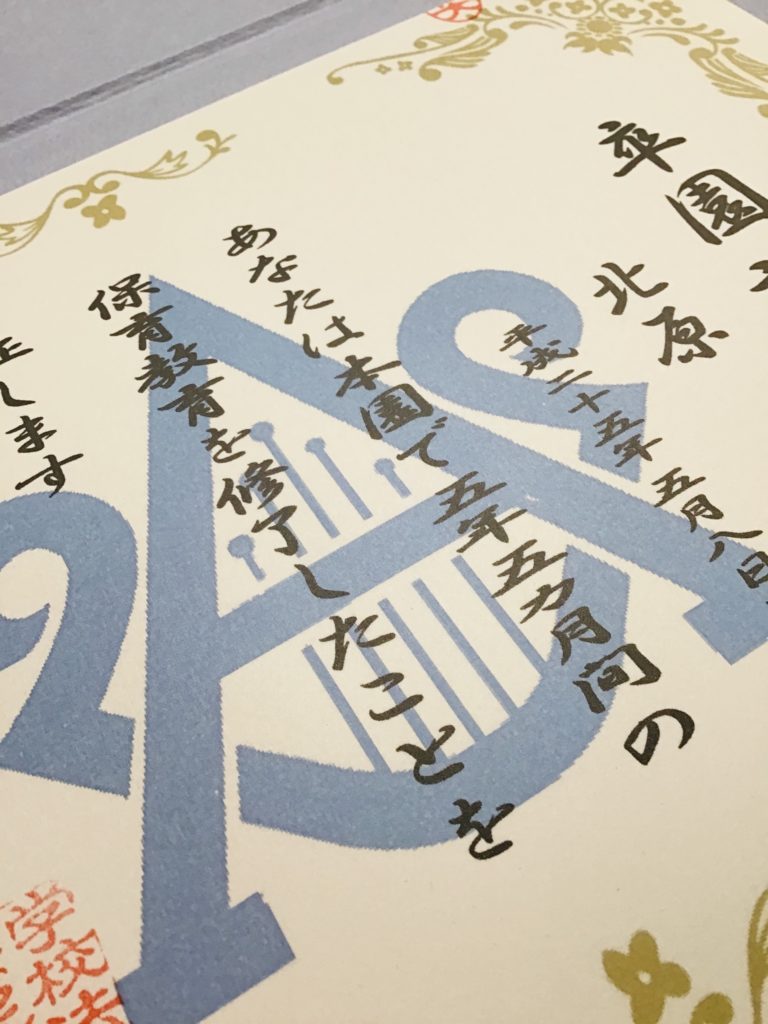 卒園
北原
平成二十五年 五月八日
あなたは本園で五年五カ月間の
保育教育を修了したことを
します
学校法